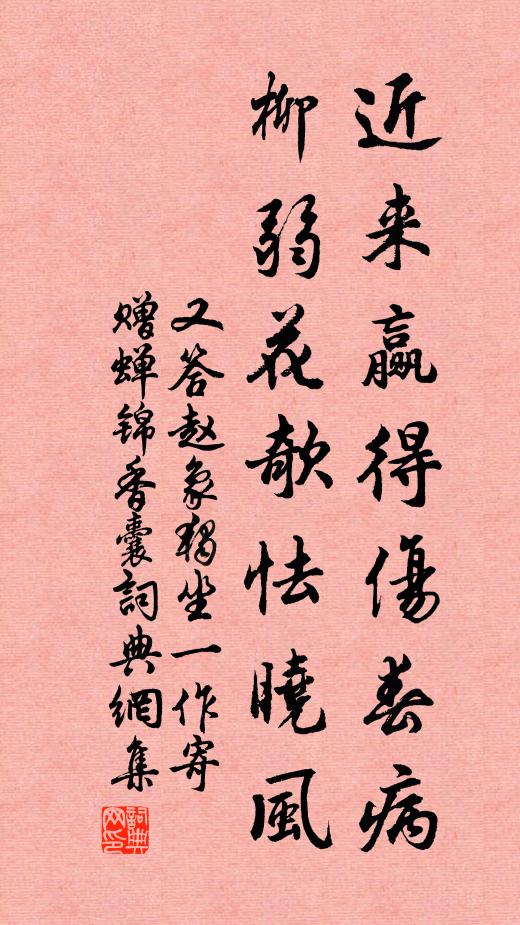 近来赢得傷春病
柳弱花欹怯曉風
又答赵象独坐一作寄
赠蝉锦香囊詞典網集
詞典
网印